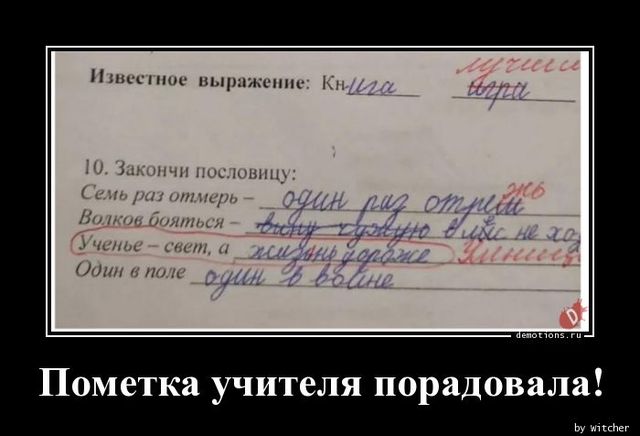 лучший
Известное выражение: Книга игра
10. Закончи пословицу:
Семь раз отмерь – один раз отрежь
Волков бояться – вину чужую в лес не хо
Ученье – свет, а жизнь дороже Умница
Один в поле один в войне
demotions.ru
Пометка учителя порадовала!
by witcher